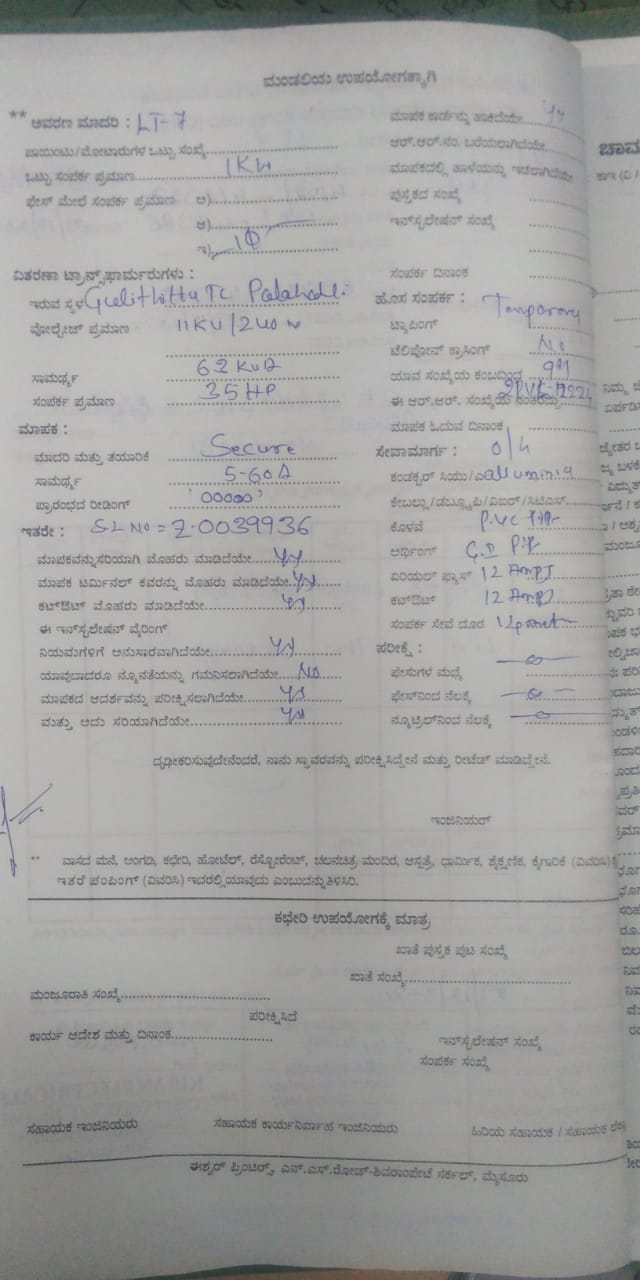 ಮಂಡಲಿಯ ಉಪಯೋಗಕ್ಕಾಗಿ
** ಆವರಣ ಮಾದರಿ : LT-7
ಪಾಯಿಂಟು/ಮೋಟಾರುಗಳ ಒಟ್ಟು ಸಂಖ್ಯೆ
ಒಟ್ಟು ಸಂಪರ್ಕ ಪ್ರಮಾಣ 1KW
ಫೇಸ್ ಮೇಲೆ ಸಂಪರ್ಕ ಪ್ರಮಾಣ ಅ)
ಆ)
ಇ) 1Φ
ವಿತರಣಾ ಟ್ರಾನ್ಸ್‌ಫಾರ್ಮರುಗಳು :
ಇರುವ ಸ್ಥಳ
ವೋಲ್ಟೇಜ್ ಪ್ರಮಾಣ 11KV/240
ಸಾಮರ್ಥ್ಯ 63 KVA
ಸಂಪರ್ಕ ಪ್ರಮಾಣ 35 HP
ಮಾಪಕ :
ಮಾದರಿ ಮತ್ತು ತಯಾರಿಕೆ Secure
ಸಾಮರ್ಥ್ಯ 5-60A
ಪ್ರಾರಂಭದ ರೀಡಿಂಗ್ '00000'
ಇತರೇ : SL NO = 2.0039936
ಮಾಪಕವನ್ನು ಸರಿಯಾಗಿ ಮೊಹರು ಮಾಡಿದೆಯೇ
ಮಾಪಕ ಟರ್ಮಿನಲ್ ಕವರನ್ನು ಮೊಹರು ಮಾಡಿದೆಯೇ
ಕಟ್‌ಔಟ್ ಮೊಹರು ಮಾಡಿದೆಯೇ
ಈ ಇನ್‌ಸ್ಟಲೇಷನ್ ವೈರಿಂಗ್
ನಿಯಮಗಳಿಗೆ ಅನುಸಾರವಾಗಿದೆಯೇ
ಯಾವುದಾದರೂ ನ್ಯೂನತೆಯನ್ನು ಗಮನಿಸಲಾಗಿದೆಯೇ NO
ಮಾಪಕದ ಆದರ್ಶವನ್ನು ಪರೀಕ್ಷಿಸಲಾಗಿದೆಯೇ
ಮತ್ತು ಅದು ಸರಿಯಾಗಿದೆಯೇ
ಮಾಪಕ ಕಾರ್ಡನ್ನು ಹಾಕಿದೆಯೇ
ಆರ್.ಆರ್.ನಂ. ಬರೆಯಲಾಗಿದೆಯೇ
ಮಾಪಕದಲ್ಲಿ ಹಾಳೆಯನ್ನು ಇಡಲಾಗಿದೆಯೇ
ಪುಸ್ತಕದ ಸಂಖ್ಯೆ
ಇನ್‌ಸ್ಟಲೇಷನ್ ಸಂಖ್ಯೆ
ಸಂಪರ್ಕ ದಿನಾಂಕ
ಹೊಸ ಸಂಪರ್ಕ : Temporary
ಟ್ಯಾಪಿಂಗ್
ಟೆಲಿಫೋನ್ ಕ್ರಾಸಿಂಗ್ No
ಯಾವ ಸಂಖ್ಯೆಯ ಕಂಬದಿಂದ
ಈ ಆರ್.ಆರ್. ಸಂಖ್ಯೆಯ ನಂತರದ್ದು
ಮಾಪಕ ಓದುವ ದಿನಾಂಕ
ಸೇವಾಮಾರ್ಗ : O/H
ಕಂಡಕ್ಟರ್ ಸಿಯು/ಎ
ಕೇಬಲ್ಲು/ಡಬ್ಲ್ಯೂಪಿ/ವಿಐಆರ್/ಸಿಟಿಎಸ್
ಕೊಳವೆ P.V.C Pipe
ಅರ್ಥಿಂಗ್ G.I Pipe
ಏರಿಯಲ್ ಫ್ಯೂಸ್ 12 Amps
ಕಟ್‌ಔಟ್ 12 Amps
ಸಂಪರ್ಕ ಸೇವೆ ದೂರ
ಪರೀಕ್ಷೆ :
ಫೇಸುಗಳ ಮಧ್ಯೆ
ಫೇಸ್‌ನಿಂದ ನೆಲಕ್ಕೆ
ನ್ಯೂಟ್ರಲ್‌ನಿಂದ ನೆಲಕ್ಕೆ
ದೃಢೀಕರಿಸುವುದೇನೆಂದರೆ, ನಾನು ಸ್ಥಾವರವನ್ನು ಪರೀಕ್ಷಿಸಿದ್ದೇನೆ ಮತ್ತು ರೀಟೆಡ್ ಮಾಡಿದ್ದೇನೆ.
ಇಂಜಿನಿಯರ್
** ವಾಸದ ಮನೆ, ಅಂಗಡಿ, ಕಛೇರಿ, ಹೋಟೆಲ್, ರೆಸ್ಟೋರೆಂಟ್, ಚಲನಚಿತ್ರ ಮಂದಿರ, ಆಸ್ಪತ್ರೆ, ಧಾರ್ಮಿಕ, ಶೈಕ್ಷಣಿಕ, ಕೈಗಾರಿಕೆ (ವಿವರಿಸಿ)
ಇತರೆ ಪಂಪಿಂಗ್ (ವಿವರಿಸಿ) ಇದರಲ್ಲಿ ಯಾವುದು ಎಂಬುದನ್ನು ತಿಳಿಸಿರಿ.
ಕಛೇರಿ ಉಪಯೋಗಕ್ಕೆ ಮಾತ್ರ
ಖಾತೆ ಪುಸ್ತಕ ಪುಟ ಸಂಖ್ಯೆ
ಖಾತೆ ಸಂಖ್ಯೆ
ಮಂಜೂರಾತಿ ಸಂಖ್ಯೆ
ಪರೀಕ್ಷಿಸಿದೆ
ಕಾರ್ಯ ಆದೇಶ ಮತ್ತು ದಿನಾಂಕ
ಇನ್‌ಸ್ಟಲೇಷನ್ ಸಂಖ್ಯೆ
ಸಂಪರ್ಕ ಸಂಖ್ಯೆ
ಸಹಾಯಕ ಇಂಜಿನಿಯರು ಸಹಾಯಕ ಕಾರ್ಯನಿರ್ವಾಹ ಇಂಜಿನಿಯರು ಹಿರಿಯ ಸಹಾಯಕ / ಸಹಾಯಕ
ಈಶ್ವರ್ ಪ್ರಿಂಟರ್ಸ್, ಎನ್.ಎಸ್.ರೋಡ್-ಶಿವರಾಂಪೇಟೆ ಸರ್ಕಲ್, ಮೈಸೂರು